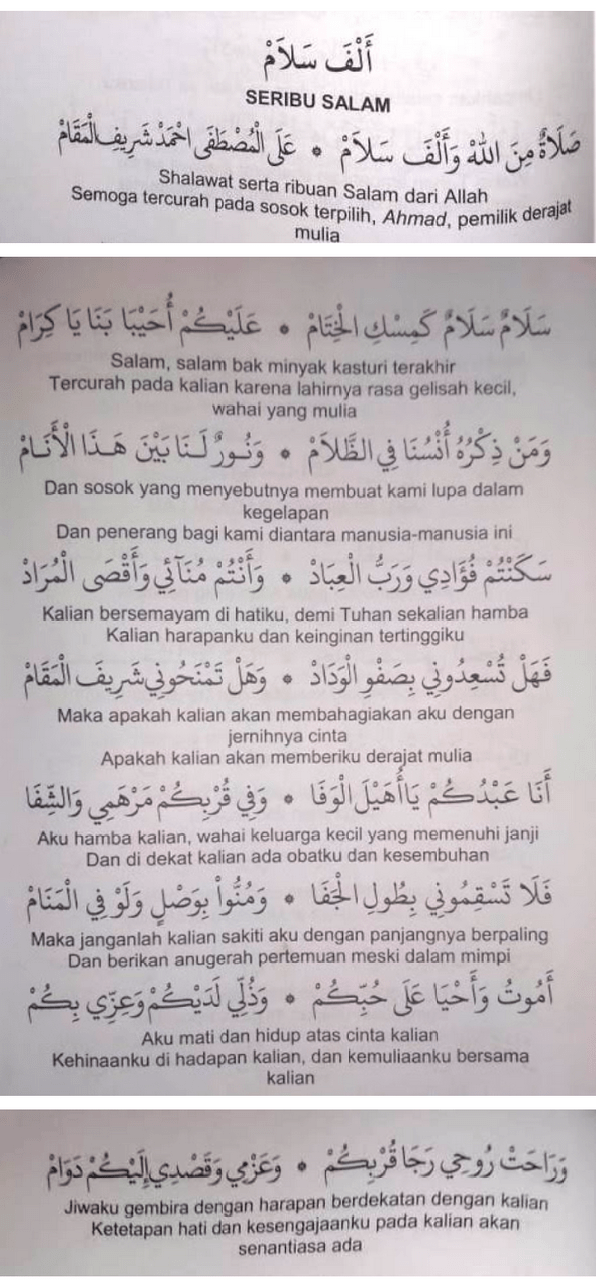 أَلْفَ سَلاَمْ
SERIBU SALAM
صَلَاةٌ مِنَ اللهْ وَأَلْفَ سَلاَمْ • عَلَى الْمُصْطَفَى احْمَدْ شَرِيفِ الْمَقَامْ
Shalawat serta ribuan Salam dari Allah
Semoga tercurah pada sosok terpilih, Ahmad, pemilik derajat
mulia
سَلاَمٌ سَلاَمٌ كَمِسْكِ الْخِتَامْ • عَلَيْكُمْ أُحَيْبَا بَنَا يَا كِرَامْ
Salam, salam bak minyak kasturi terakhir
Tercurah pada kalian karena lahirnya rasa gelisah kecil,
wahai yang mulia
وَمَنْ ذِكْرُهُ أُنْسُنَا فِي الظَّلاَمْ • وَنُورٌ لَنَا بَيْنَ هَذَا الْأَنَامْ
Dan sosok yang menyebutnya membuat kami lupa dalam
kegelapan
Dan penerang bagi kami diantara manusia-manusia ini
سَكَنْتُمْ فُؤَادِي وَرَبُّ الْعِبَادْ • وَأَنْتُمْ مُنَآئِي وَأَقْصَى الْمُرَادْ
Kalian bersemayam di hatiku, demi Tuhan sekalian hamba
Kalian harapanku dan keinginan tertinggiku
فَهَلْ تُسْعِدُونِي بِصَفْوِ الْوَدَادْ • وَهَلْ تَمْنَحُونِي شَرِيفَ الْمَقَامْ
Maka apakah kalian akan membahagiakan aku dengan
jernihnya cinta
Apakah kalian akan memberiku derajat mulia
أَنَا عَبْدُكُمْ يَاأُهَيْلَ الْوَفَا • وَفِي قُرْبِكُمْ مَرْهَمِي وَالشِّفَا
Aku hamba kalian, wahai keluarga kecil yang memenuhi janji
Dan di dekat kalian ada obatku dan kesembuhan
فَلَا تَسْقِمُونِي بِطُولِ الْجَفَا • وَمُنُّواْ بِوَصْلٍ وَلَوْ فِي الْمَنَامْ
Maka janganlah kalian sakiti aku dengan panjangnya berpaling
Dan berikan anugerah pertemuan meski dalam mimpi
أَمُوتُ وَأَحْيَا عَلَى حُبِّكُمْ • وَذُلِّي لَدَيْكُمْ وَعِزِّي بِكُمْ
Aku mati dan hidup atas cinta kalian
Kehinaanku di hadapan kalian, dan kemuliaanku bersama
kalian
وَرَاحَتْ رُوحِي رَجَا قُرْبِكُمْ • وَعَزْمِي وَقَصْدِي إِلَيْكُمْ دَوَامْ
Jiwaku gembira dengan harapan berdekatan dengan kalian
Ketetapan hati dan kesengajaanku pada kalian akan
senantiasa ada